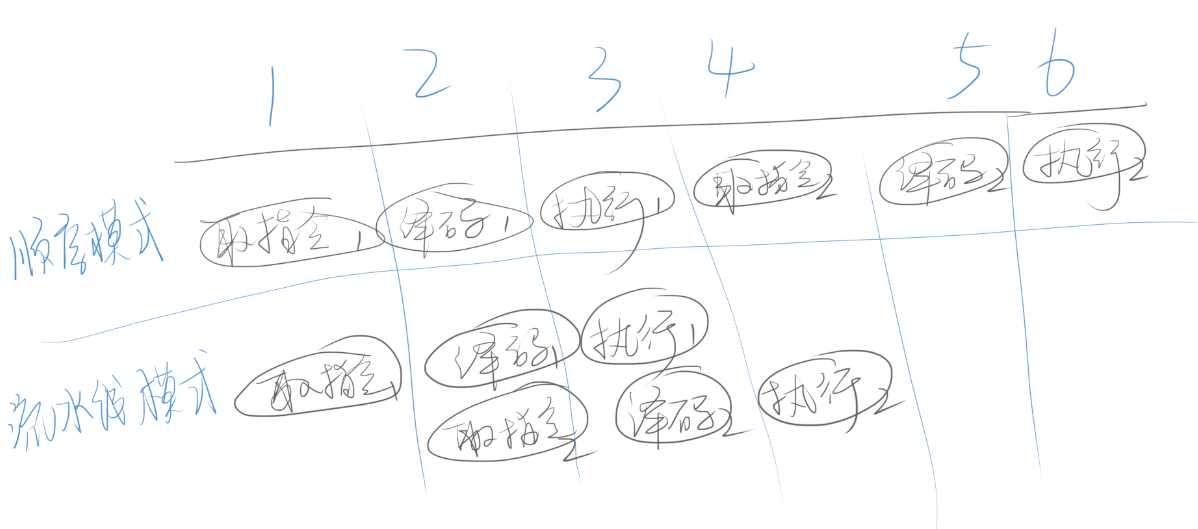 1 2 3 4 5 6
顺序模式 取指令1 译码1 执行1 取指令2 译码2 执行2
流水线模式 取指令1 译码1 执行1
取指令2 译码2 执行2